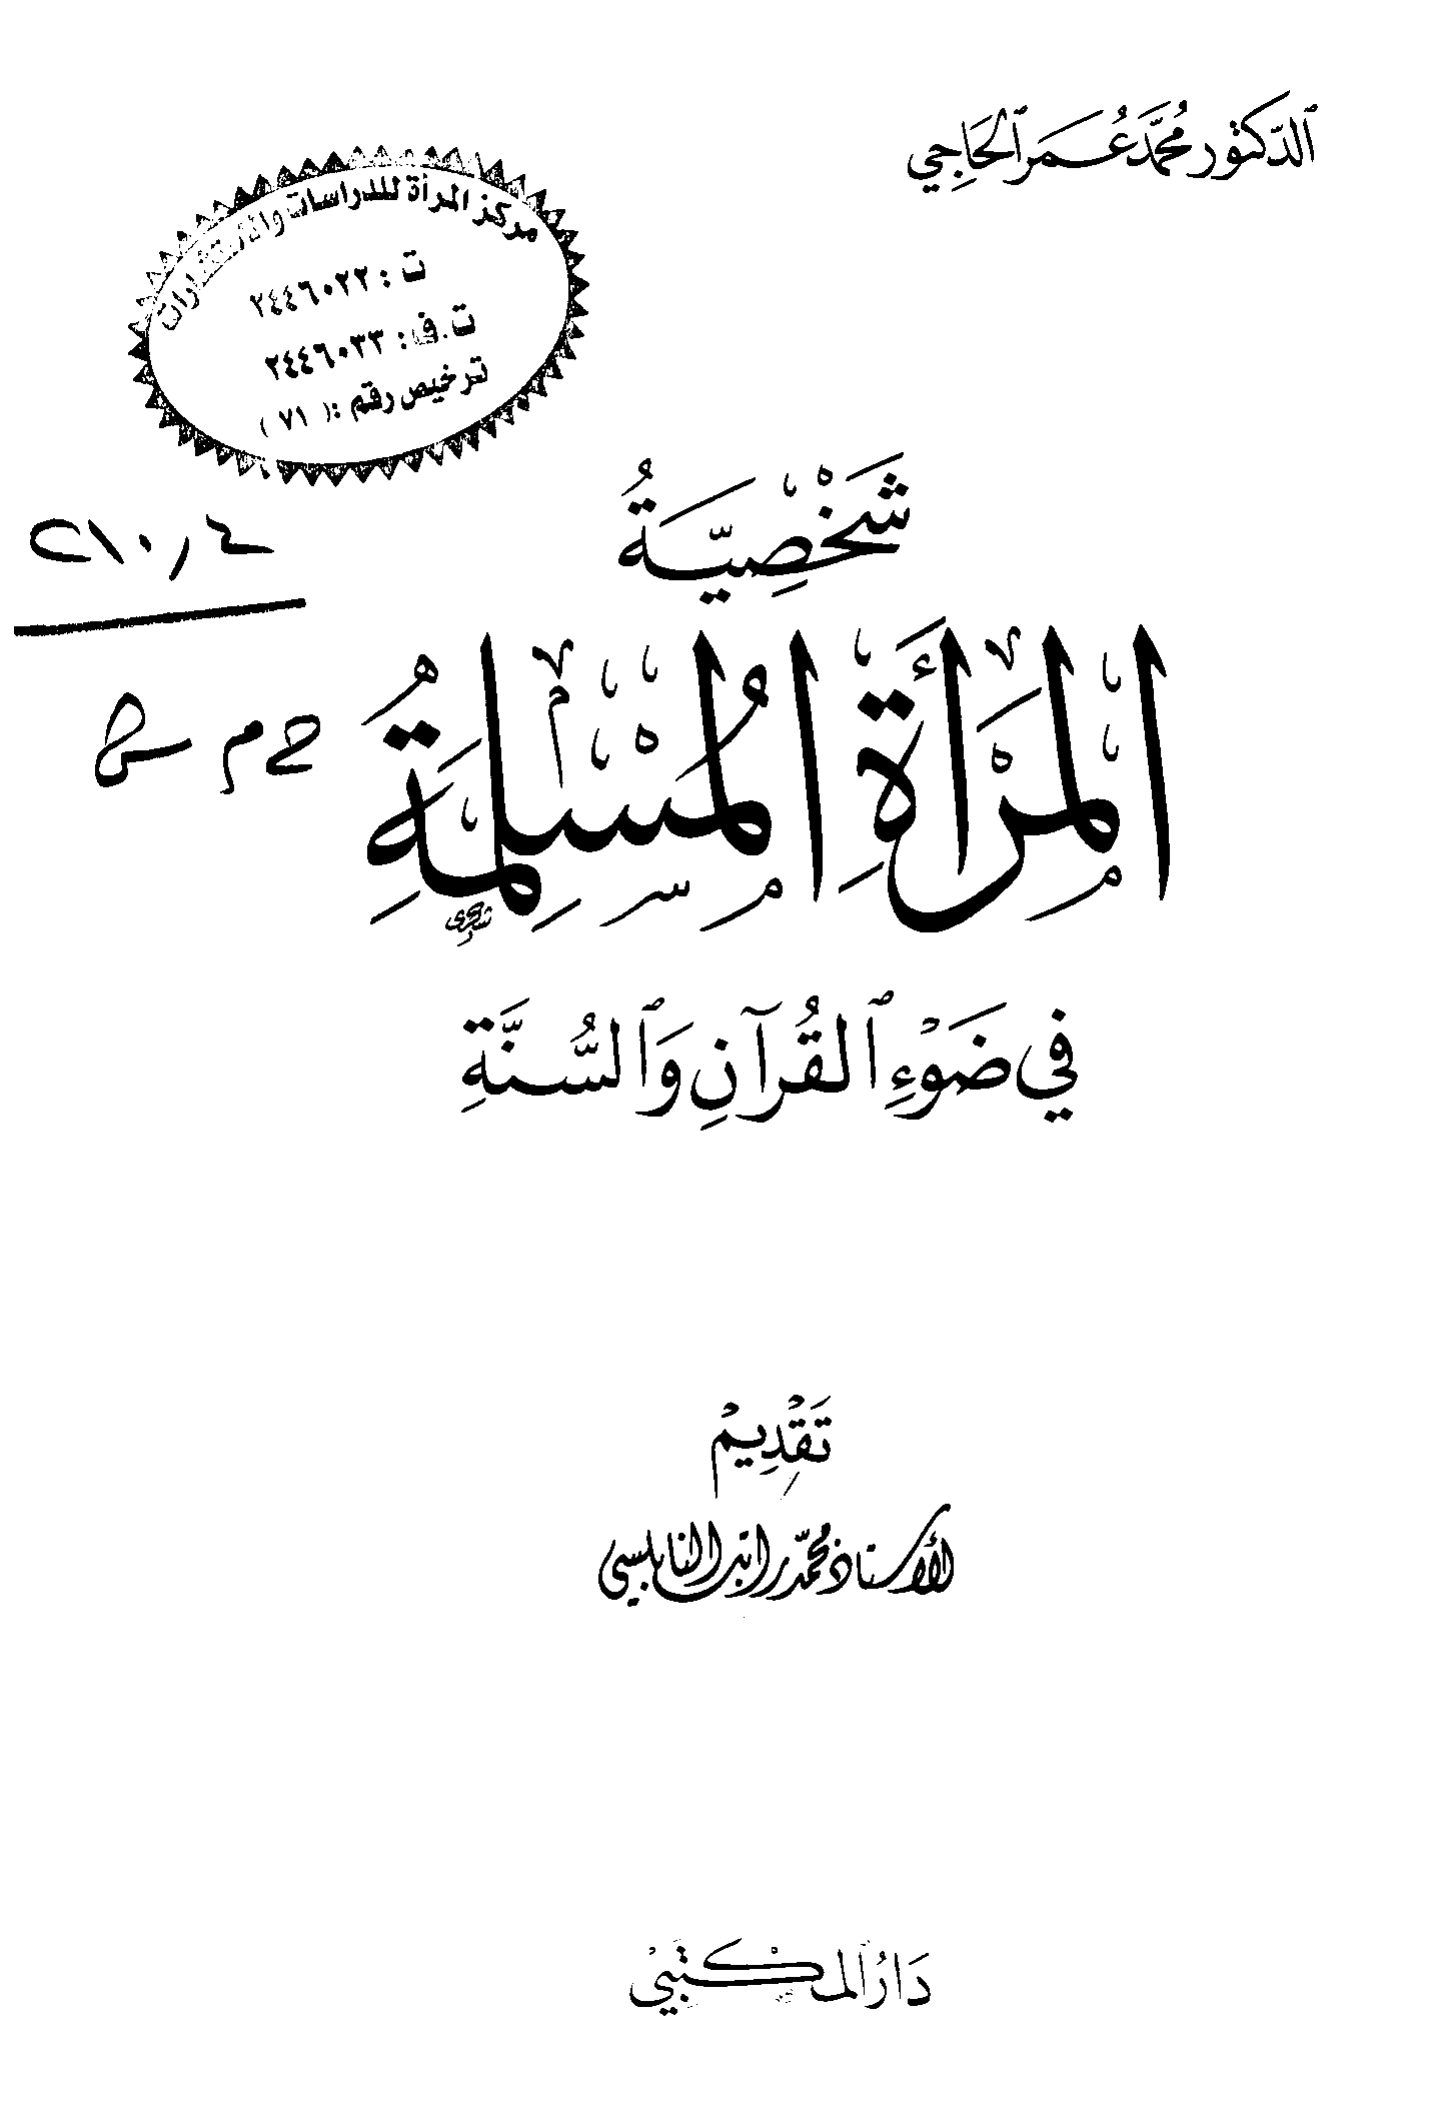 الدكتور محمد عمر الحاجي
مركز المرأة للدراسات والاستشارات
ت : ٢٤٤٦٠٢٢
ت . ف : ٢٤٤٦٠٣٣
ترخيص رقم : ( ٧١ )
شَخْصِيَّةُ
٢١٠٫٤
المَرْأَةِ المُسْلِمَةِ
ح م
فِي ضَوْءِ ٱلقُرْآنِ وَٱلسُّنَّةِ
تَقْدِيم
الأستاذ محمد راتب النابلسي
دَارُ المكتبي